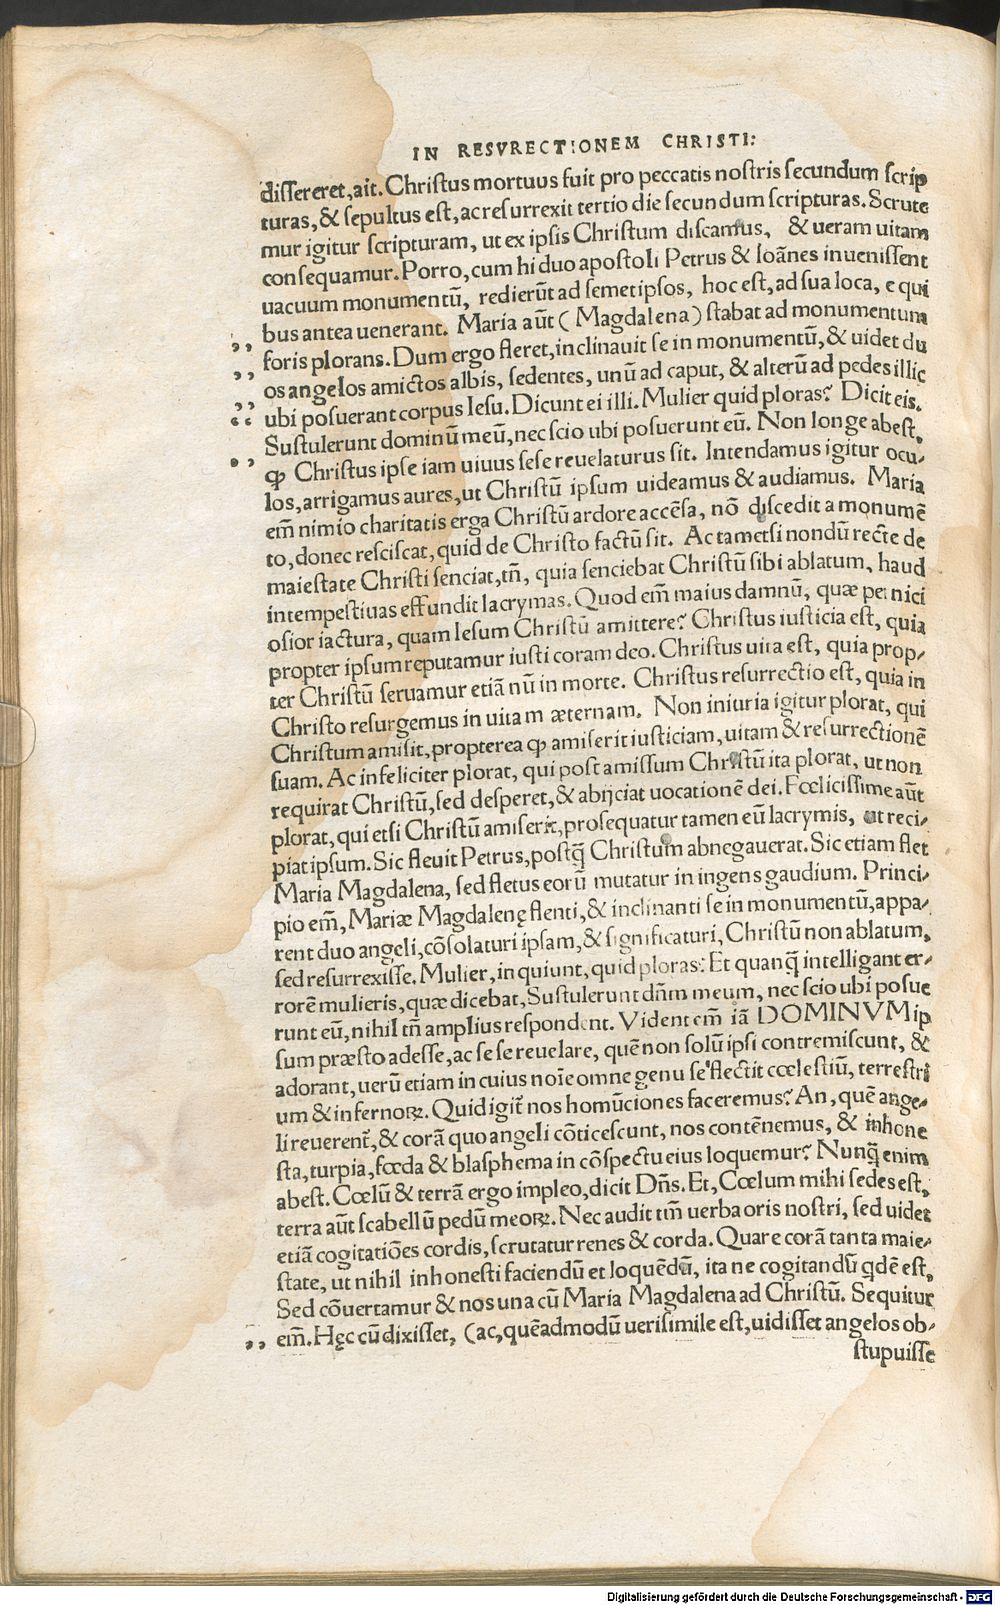 IN RESVRECTIONEM CHRISTI:
dissereret, ait. Christus mortuus fuit pro peccatis nostris secundum scrip
turas, & sepultus est, ac resurrexit tertio die secundum scripturas. Scrute
mur igitur scripturam, ut ex ipsis Christum discamus, & ueram uitam
consequamur. Porro, cum hi duo apostoli Petrus & Ioãnes inuenissent
uacuum monumentũ, redierũt ad semetipsos, hoc est, ad sua loca, e qui
bus antea uenerant. Maria aũt ( Magdalena ) stabat ad monumentum
foris plorans. Dum ergo fleret, inclinauit se in monumentũ, & uidet du
os angelos amictos albis, sedentes, unũ ad caput, & alterũ ad pedes illic
ubi posuerant corpus Iesu. Dicunt ei illi. Mulier quid ploras? Dicit eis.
Sustulerunt dominũ meũ, nec scio ubi posuerunt eũ. Non longe abest,
ꝙ Christus ipse iam uiuus sese reuelaturus sit. Intendamus igitur ocu,
los, arrigamus aures, ut Christũ ipsum uideamus & audiamus. Maria
em̃ nimio charitatis erga Christũ ardore accẽsa, nõ discedit a monumẽ
to, donec resciscat, quid de Christo factũ sit. Ac tametsi nondũ recte de
maiestate Christi senciat, tñ, quia senciebat Christũ sibi ablatum, haud
intempestiuas effundit lacrymas. Quod em̃ maius damnũ, quæ pernici
osior iactura, quam Iesum Christũ amittere? Christus iusticia est, quia
propter ipsum reputamur iusti coram deo. Christus uita est, quia prop,
ter Christũ seruamur etiã nũ in morte. Christus resurrectio est, quia in
Christo resurgemus in uitam æternam. Non iniuria igitur plorat, qui
Christum amisit, propterea ꝙ amiserit iusticiam, uitam & resurrectionẽ
suam. Ac infeliciter plorat, qui post amissum Christũ ita plorat, ut non
requirat Christũ, sed desperet, & abijciat uocationẽ dei. Fœlicissime aũt
plorat, qui etsi Christũ amiserit, prosequatur tamen eũ lacrymis, ut reci,
piat ipsum. Sic fleuit Petrus, postq̃ Christum abnegauerat. Sic etiam flet
Maria Magdalena, sed fletus eorũ mutatur in ingens gaudium. Princi,
pio em̃, Mariæ Magdalenę flenti, & inclinanti se in monumentũ, appa,
rent duo angeli, cõsolaturi ipsam, & significaturi, Christũ non ablatum,
sed resurrexisse. Mulier, inquiunt, quid ploras? Et quanq̃ intelligant er,
rorẽ mulieris, quæ dicebat, Sustulerunt dñm meum, nec scio ubi posue
runt eũ, nihil tñ amplius respondent. Vident em̃ iã DOMINVM ip
sum præsto adesse, ac se se reuelare, quẽ non solũ ipsi contremiscunt, &
adorant, uerũ etiam in cuius noĩe omne genu se flectit cœlestiũ, terrestri
um & infernoꝝ. Quid igit̃ nos homũciones faceremus? An, quẽ ange,
li reuerent̃, & corã quo angeli cõticescunt, nos contẽnemus, & inhone
sta, turpia, fœda & blasphema in cõspectu eius loquemur? Nunq̃ enim
abest. Cœlũ & terrã ergo impleo, dicit Dñs. Et, Cœlum mihi sedes est,
terra aũt scabellũ pedũ meoꝝ. Nec audit tm̃ uerba oris nostri, sed uidet
etiã cogitatiões cordis, scrutatur renes & corda. Quare corã tanta maie,
state, ut nihil inhonesti faciendũ et loquẽdũ, ita ne cogitandũ qdẽ est,
Sed cõuertamur & nos una cũ Maria Magdalena ad Christũ. Sequitur
em̃. Hęc cũ dixisset, (ac, quẽadmodũ uerisimile est, uidisset angelos ob,
stupuisse
Digitalisierung gefördert durch die Deutsche Forschungsgemeinschaft - DFG